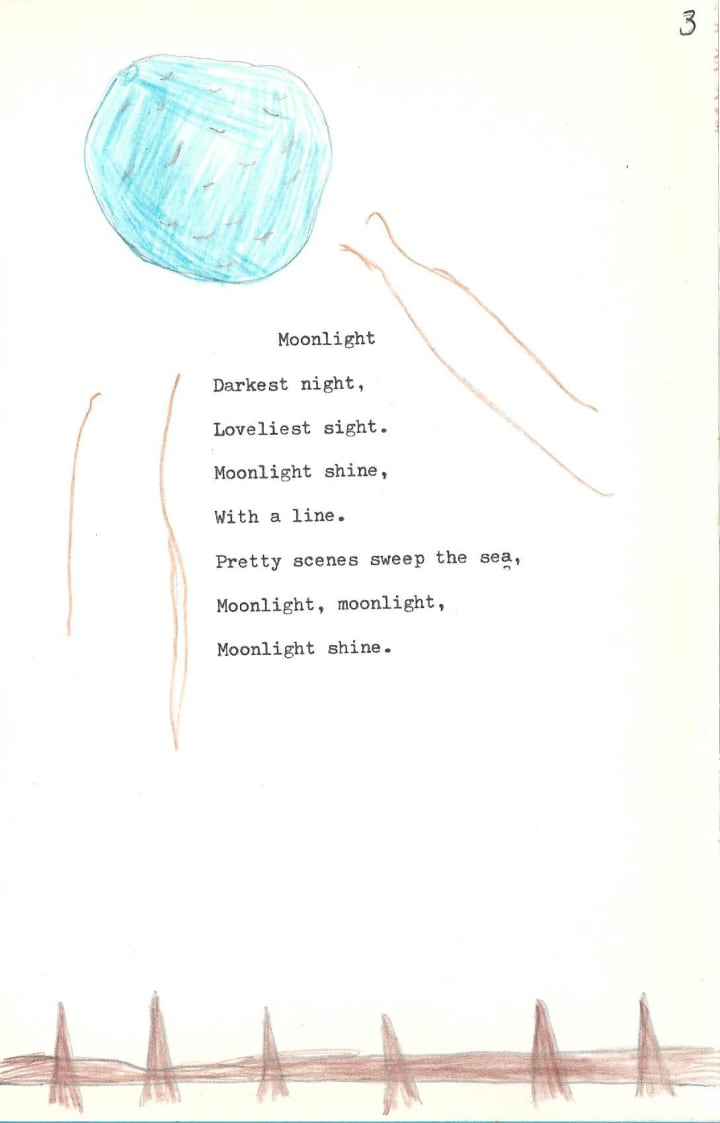 3
Moonlight
Darkest night,
Loveliest sight.
Moonlight shine,
With a line.
Pretty scenes sweep the sea,
Moonlight, moonlight,
Moonlight shine.